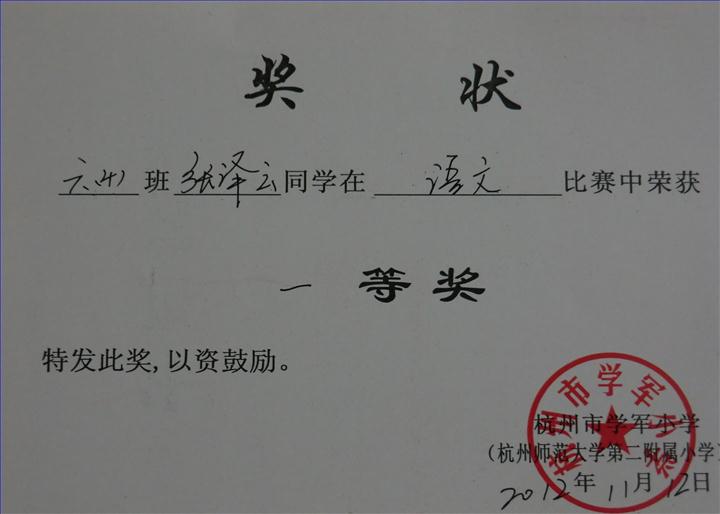 奖 状
六(4)班张泽云同学在 语文 比赛中荣获
一 等 奖
特发此奖,以资鼓励。
杭州市学军小学
杭州市学军小学
(杭州师范大学第二附属小学)
2012年11月12日